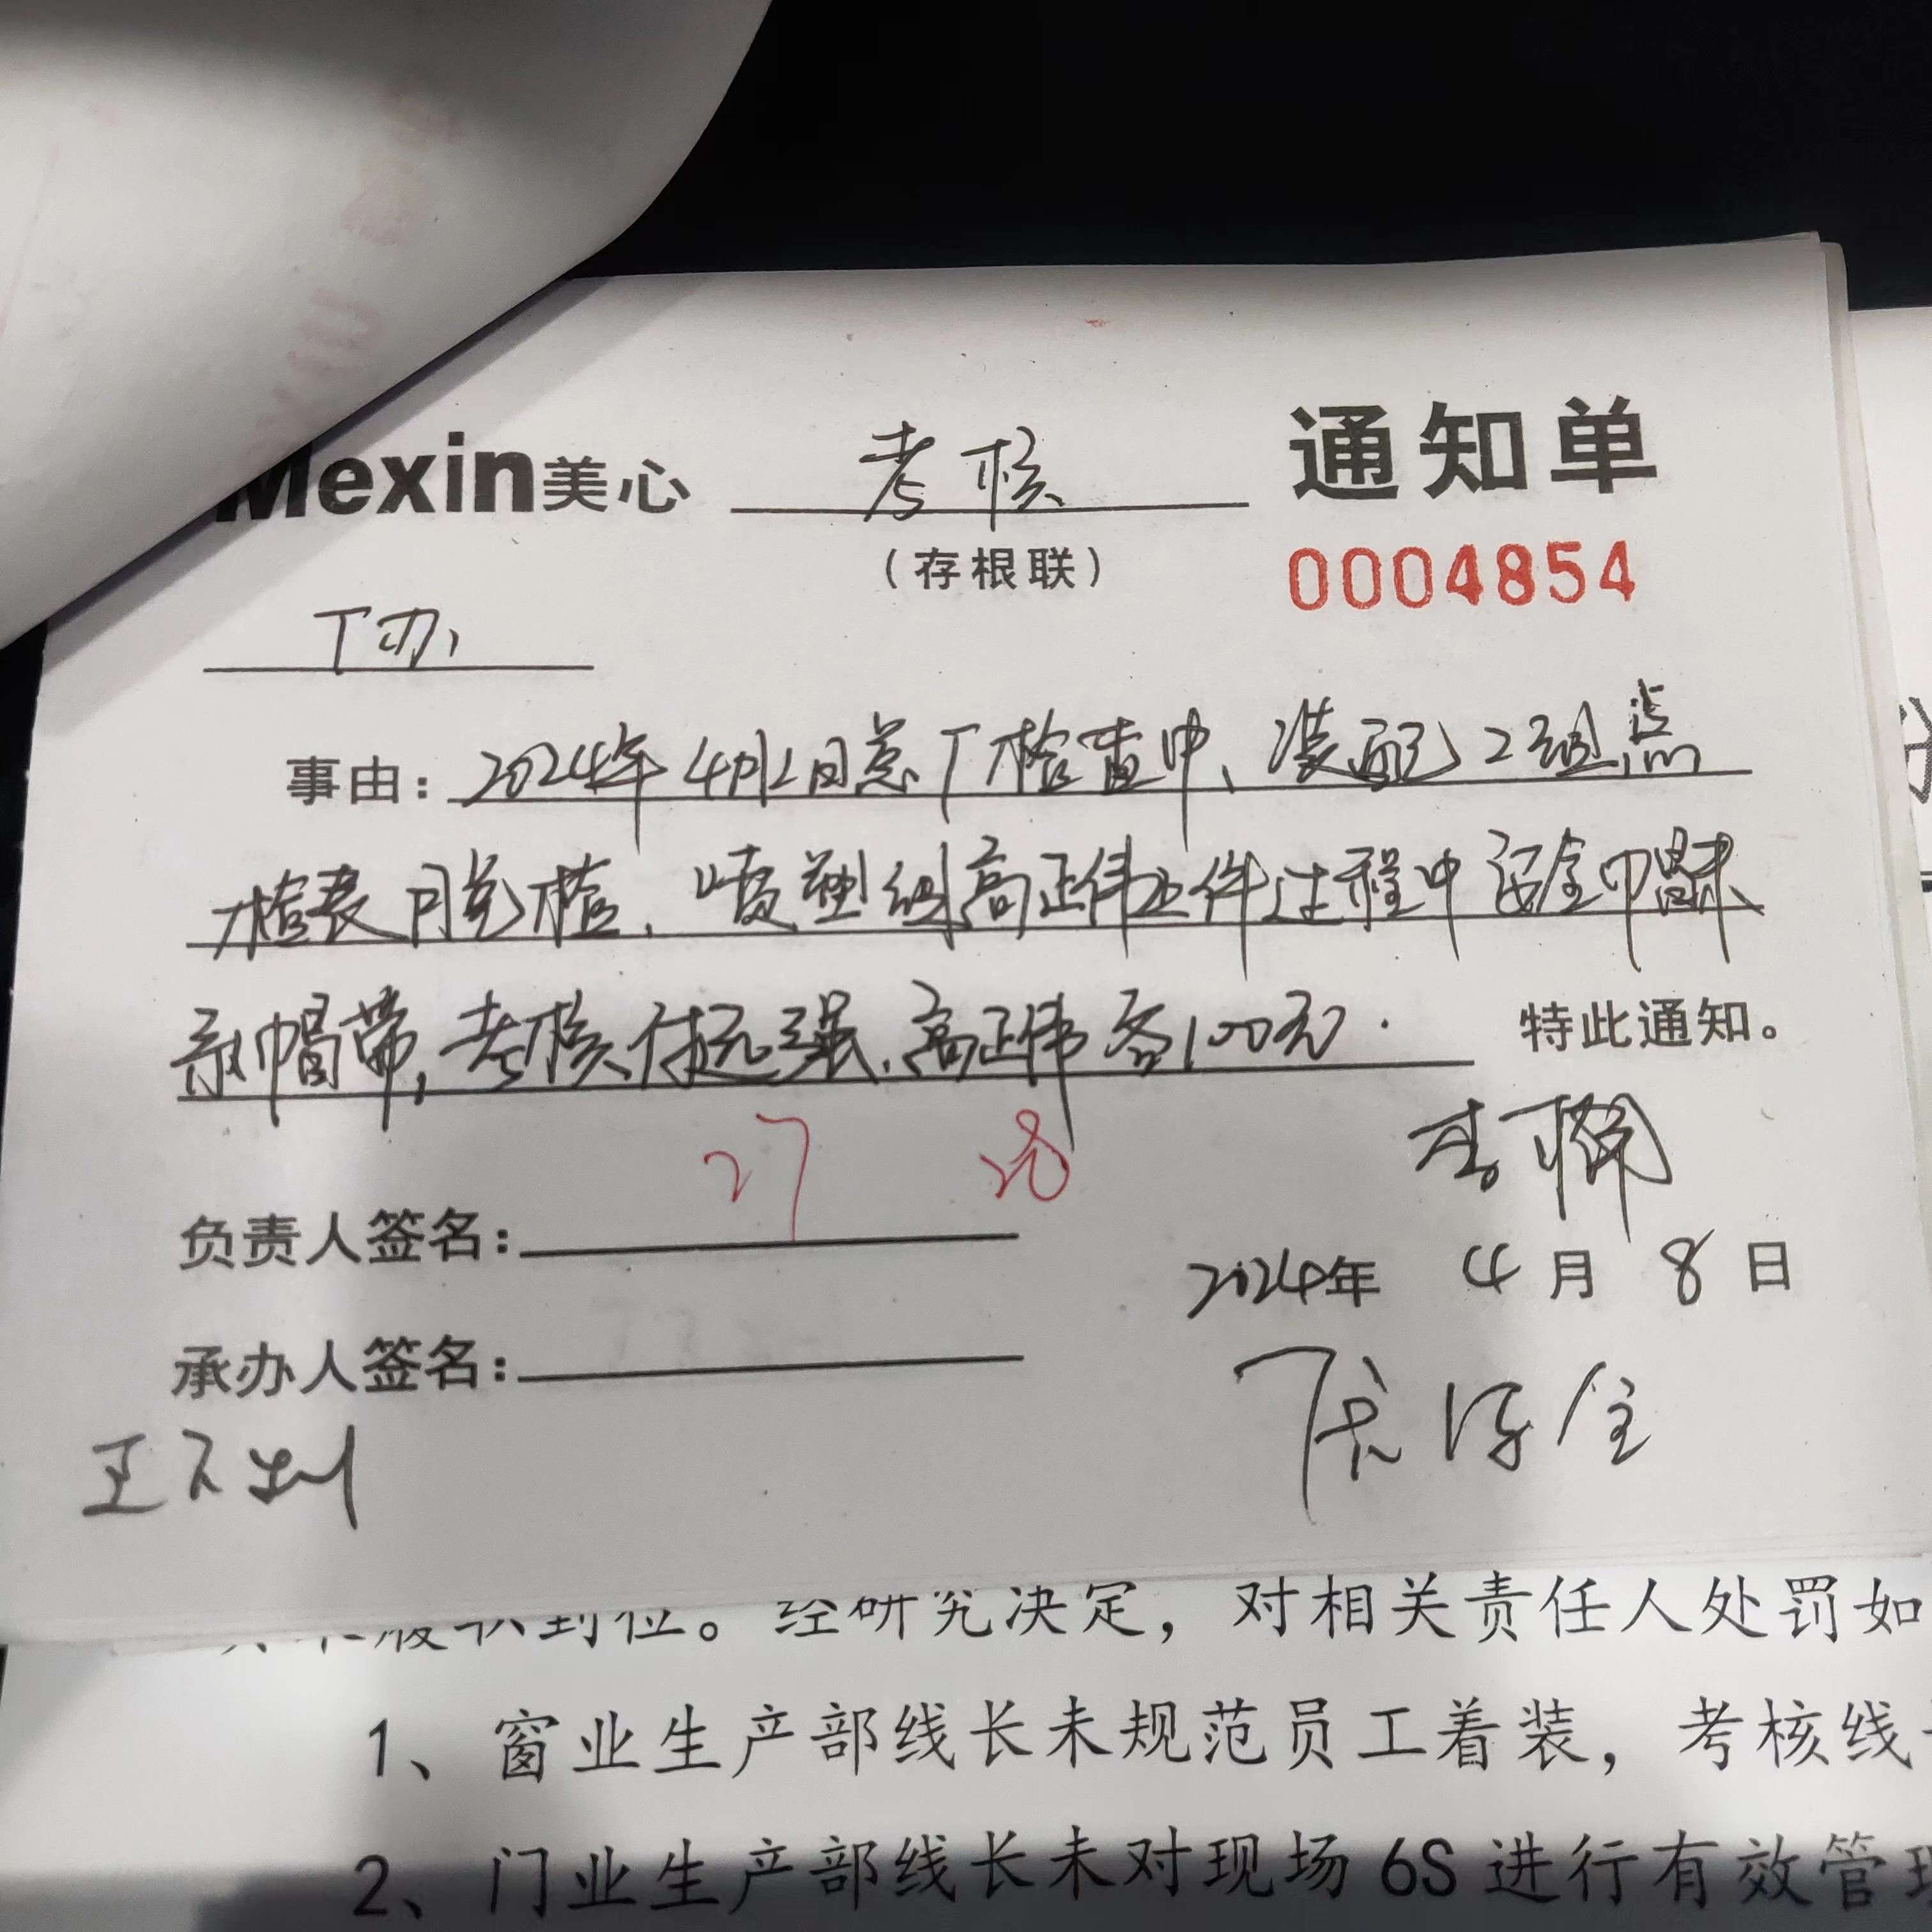 Mexin美心 考核 通知单
（存根联） 0004854
厂办
事由：2024年4月2日总厂检查中、装配2组点
检表脱检、喷塑组高正伟上件过程中安全帽未
系帽带，考核付远强、高正伟各100元. 特此通知。
27 28
负责人签名：
2024年 4月 8日
承办人签名：
履职到位。经研究决定，对相关责任人处罚如
1、窗业生产部线长未规范员工着装，考核线
2、门业生产部线长未对现场6S进行有效管理